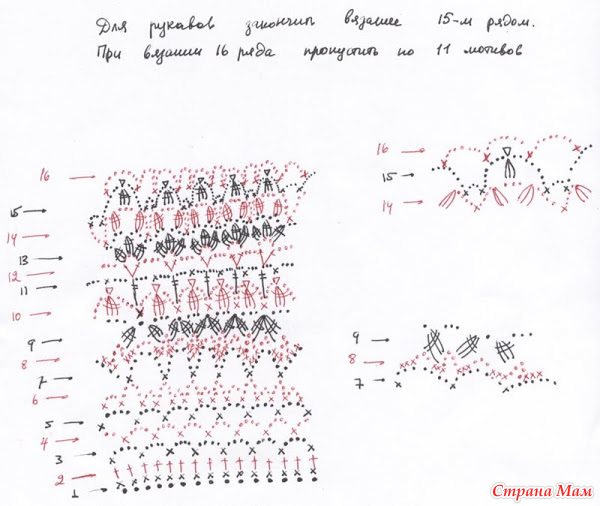 Для рукавов закончить вязание 15-м рядом.
При вязании 16 ряда пропустить по 11 мотивов
16
15
14
13
12
11
10
9
8
7
6
5
4
3
2
1
16
15
14
9
8
7
Страна Мам